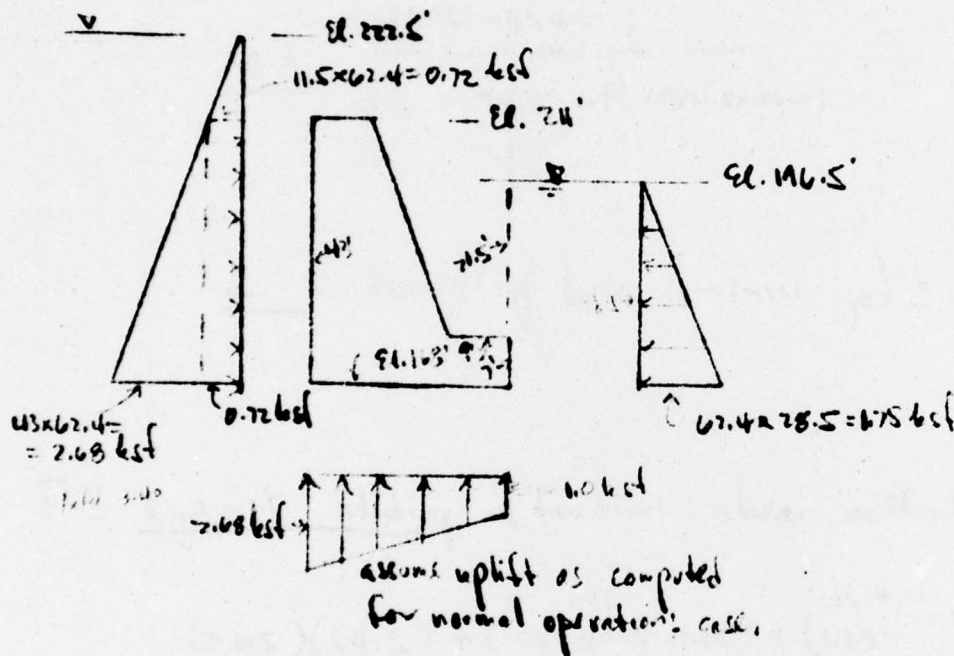 El. 222.5'
11.5×62.4 = 0.72 ksf
El. 211'
El. 196.5'
El. 168'
43×62.4 =
= 2.68 ksf
0.72 ksf
62.4 × 28.5 = 1.75 ksf
2.68 ksf
1.0 ksf
assums uplift as computed
for normal operations case.